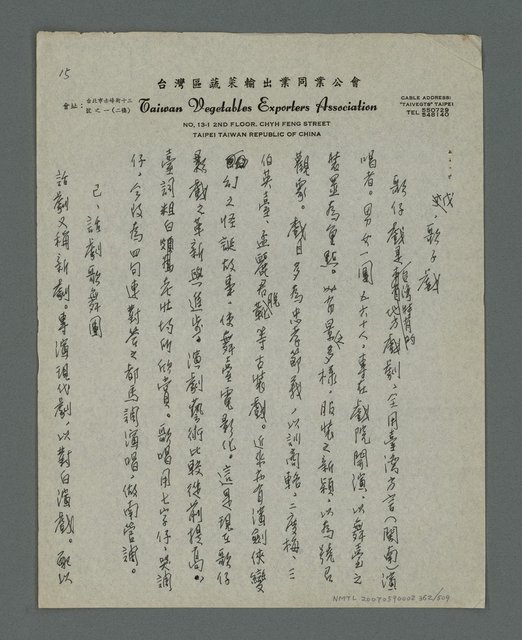 15
台灣區蔬菜輸出業同業公會
會址：台北市赤峰街十三號之一(二樓)
Taiwan Vegetables Exporters Association
CABLE ADDRESS:
"TAIVEGTS" TAIPEI
TEL 550729
548140
NO. 13-1 2ND FLOOR, CHYH FENG STREET
TAIPEI TAIWAN REPUBLIC OF CHINA
戊、歌子戲
歌仔戲是臺灣特有的地方戲劇、全用臺灣方言(閩南)演
唱者。男女一團五六十人。專在戲院開演、以舞臺之
裝置為重點。以背景之多樣，服裝之新穎，以為號召
觀眾。戲目多為忠孝節義，以訓商輅，二度梅、三
伯英臺、孟麗君脫靴等古裝戲。近來亦有演劍俠變
幻之怪誕故事。使舞臺電影化。這是現在歌仔
戲之革新與進步。演劇藝術比較從前提高。
臺詞粗白頗為老壯均所欣賞。歌唱用七字仔，哭調
仔，今改為四句連對答之都馬調演唱，倣南管調。
己、話劇歌舞團
話劇又稱新劇。專演現代劇，以對白演戲。配以
NMTL 20070590002 362/509